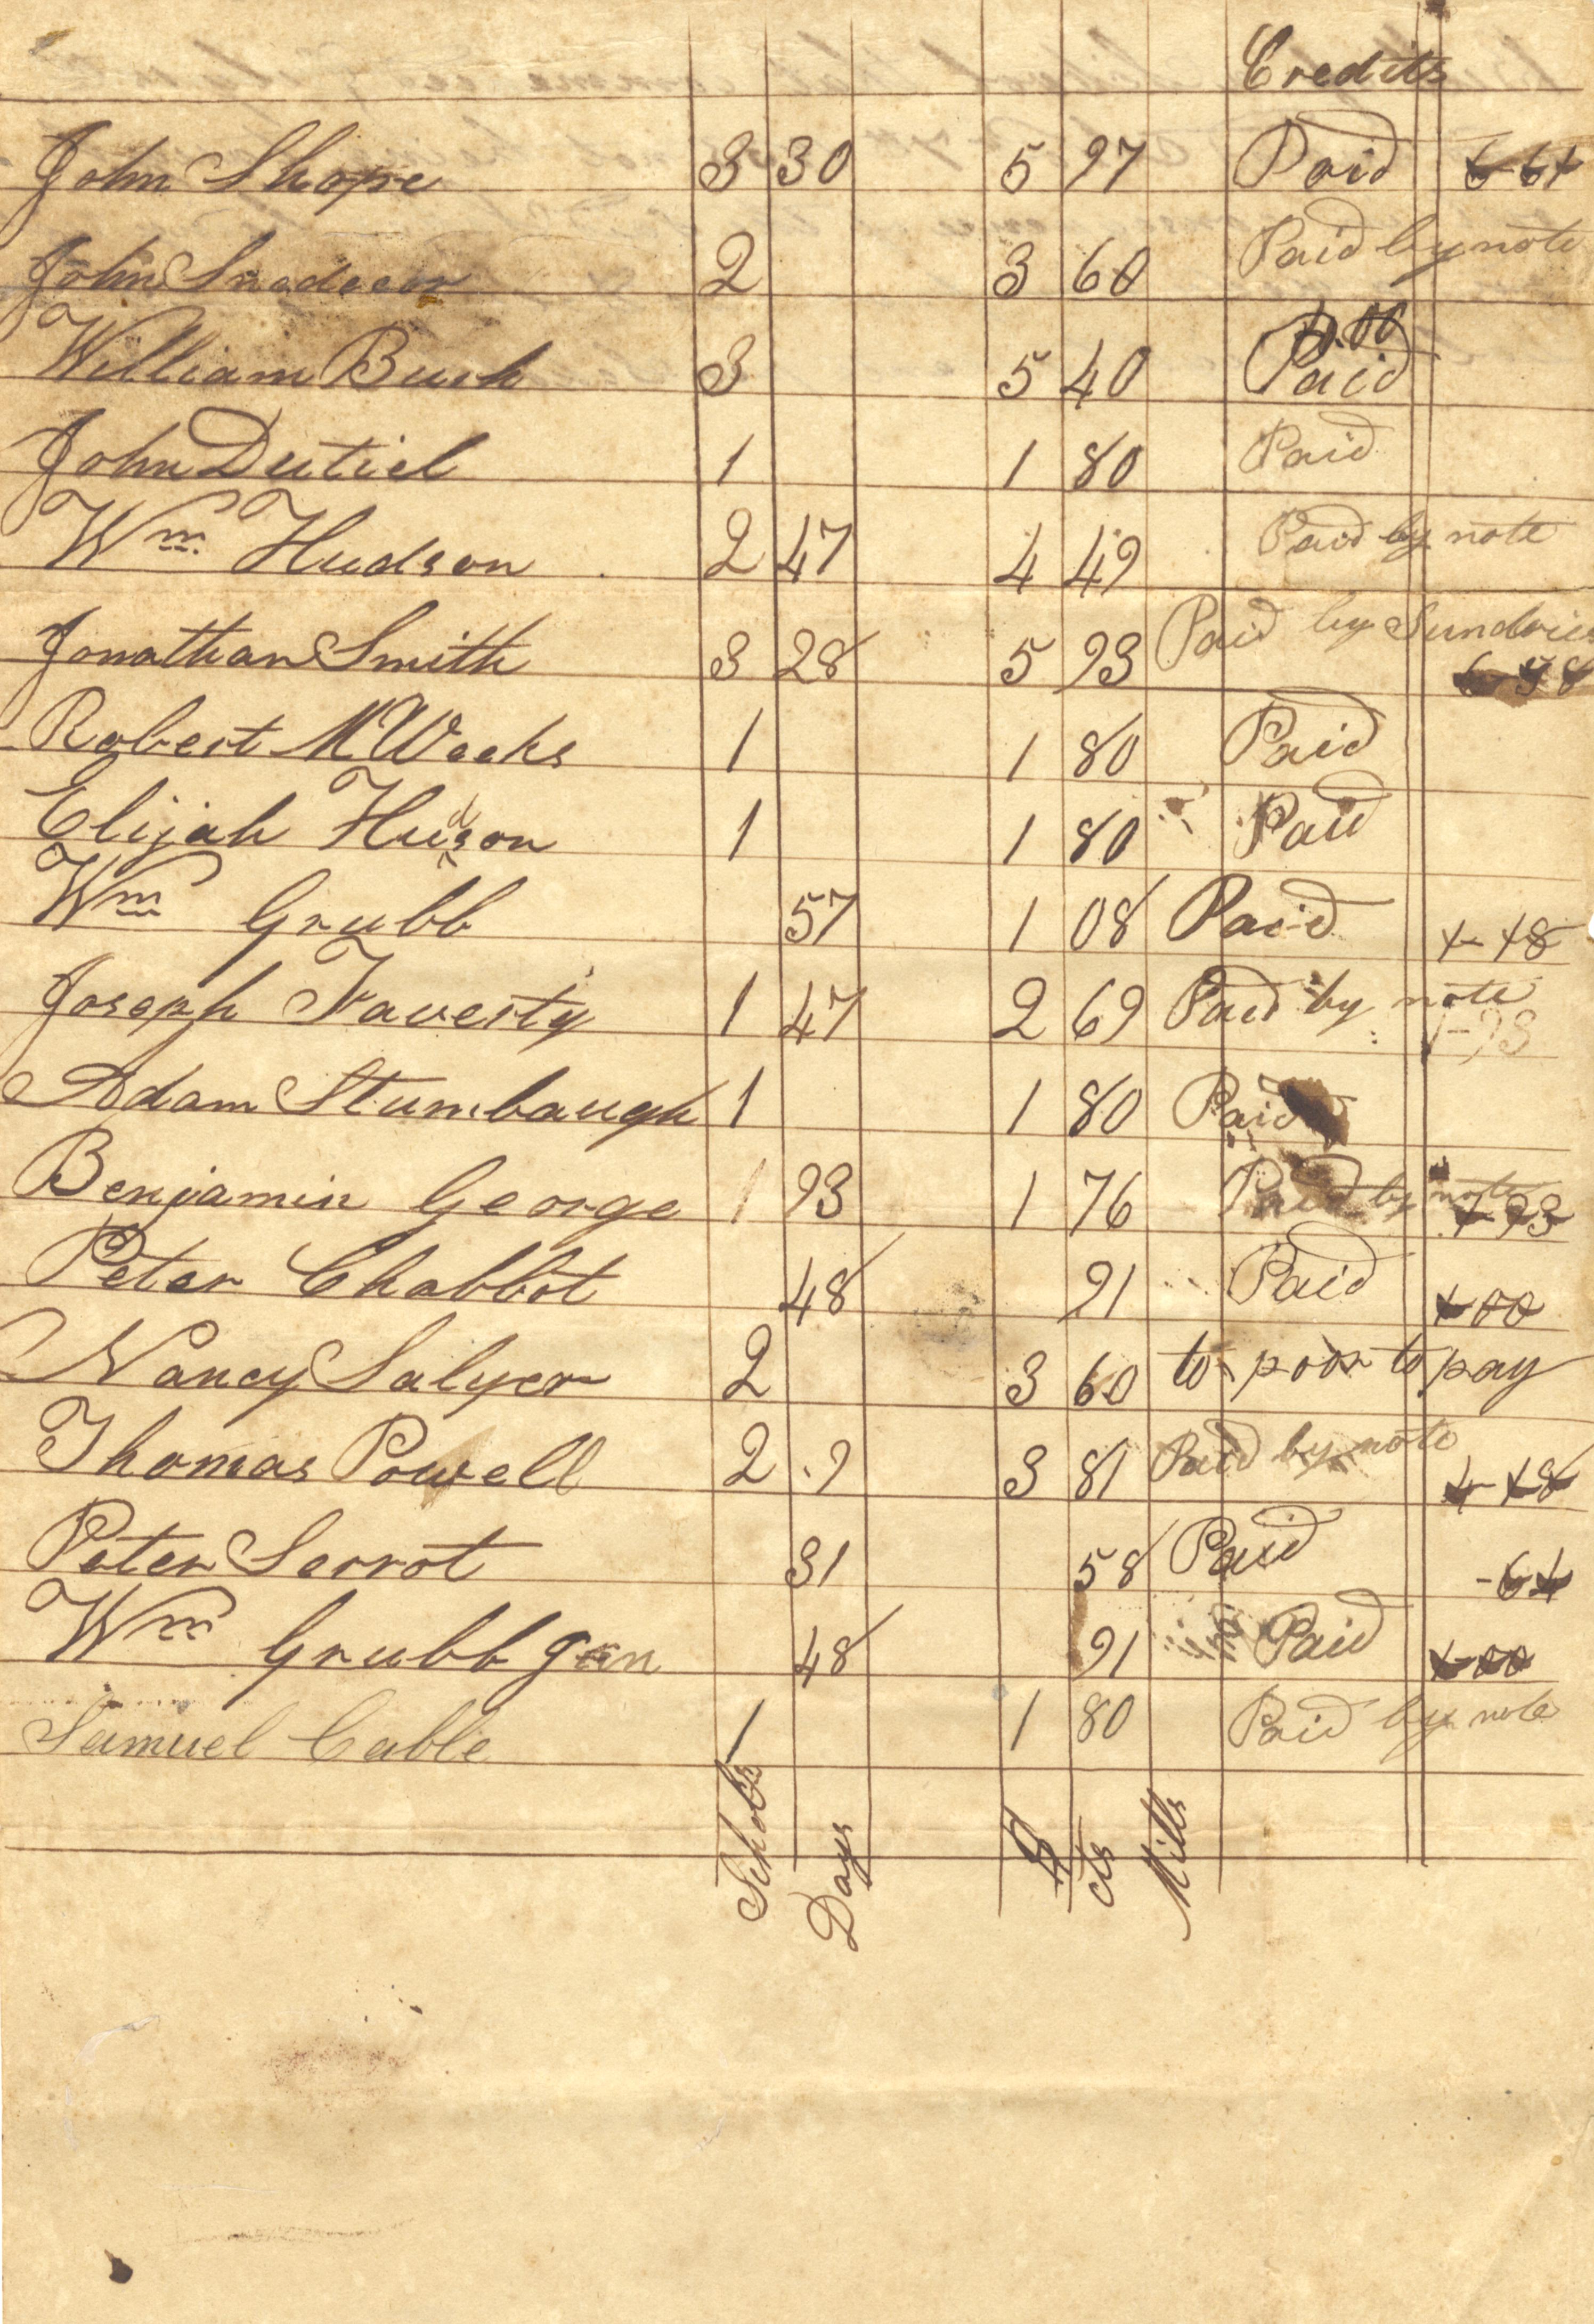 Credits
John Shope 3 30 5 97 Paid 6 64
John Snedecor 2 3 60 Paid by note
William Bush 3 5 40 Paid
John Dutiel 1 1 80 Paid
Wm Hudson 2 47 4 49 Paid by note
Jonathan Smith 3 28 5 93 Paid by Sundries
Robert McWeeks 1 1 80 Paid
Elijah Hudson 1 1 80 Paid
Wm Grubb 57 1 08 Paid
Joseph Faverty 1 47 2 69 Paid by note
Adam Stumbaugh 1 1 80 Paid
Benjamin George 1 93 1 76 Paid by note
Peter Chabbot 48 91 Paid
Nancy Salyer 2 3 60 to poor to pay
Thomas Powell 2 9 3 81 Paid by note
Peter Serrot 31 58 Paid
Wm Grubb 48 91 Paid
Samuel Cable 1 1 80 Paid by note
Schols Days $ cts Mills